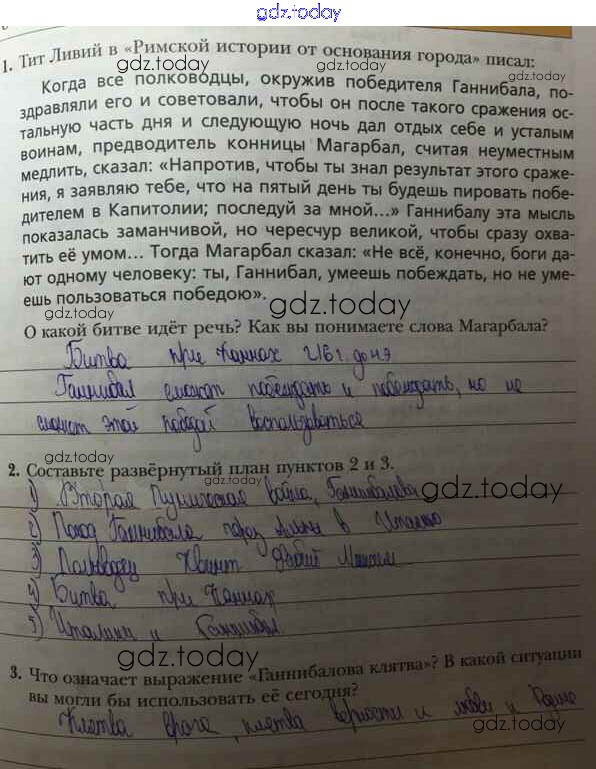 gdz.today
1. Тит Ливий в «Римской истории от основания города» писал:
gdz.today gdz.today
Когда все полководцы, окружив победителя Ганнибала, по-
здравляли его и советовали, чтобы он после такого сражения ос-
тальную часть дня и следующую ночь дал отдых себе и усталым
воинам, предводитель конницы Магарбал, считая неуместным
медлить, сказал: «Напротив, чтобы ты знал результат этого сраже-
ния, я заявляю тебе, что на пятый день ты будешь пировать побе-
дителем в Капитолии; последуй за мной...» Ганнибалу эта мысль
показалась заманчивой, но чересчур великой, чтобы сразу охва-
тить её умом... Тогда Магарбал сказал: «Не всё, конечно, боги да-
ют одному человеку: ты, Ганнибал, умеешь побеждать, но не уме-
ешь пользоваться победою».
gdz.today
О какой битве идёт речь? Как вы понимаете слова Магарбала?
Битва при Каннах 216 г. до нэ
Ганнибал сможет победждать и победждать, но не
сможет этой победой воспользоваться
gdz.today gdz.today
2. Составьте развёрнутый план пунктов 2 и 3.
1) Вторая Пуническая война, Ганнибалава
gdz.today
2) Поход Ганнибала через Альпы в Италию
3) Полководец Квинт Фабий Максим
4) Битва при Каннах
5) Италики и Ганнибал
gdz.today
3. Что означает выражение «Ганнибалова клятва»? В какой ситуации
вы могли бы использовать её сегодня?
Клятва врага, клятва верности и любви к Родине
gdz.today gdz.today